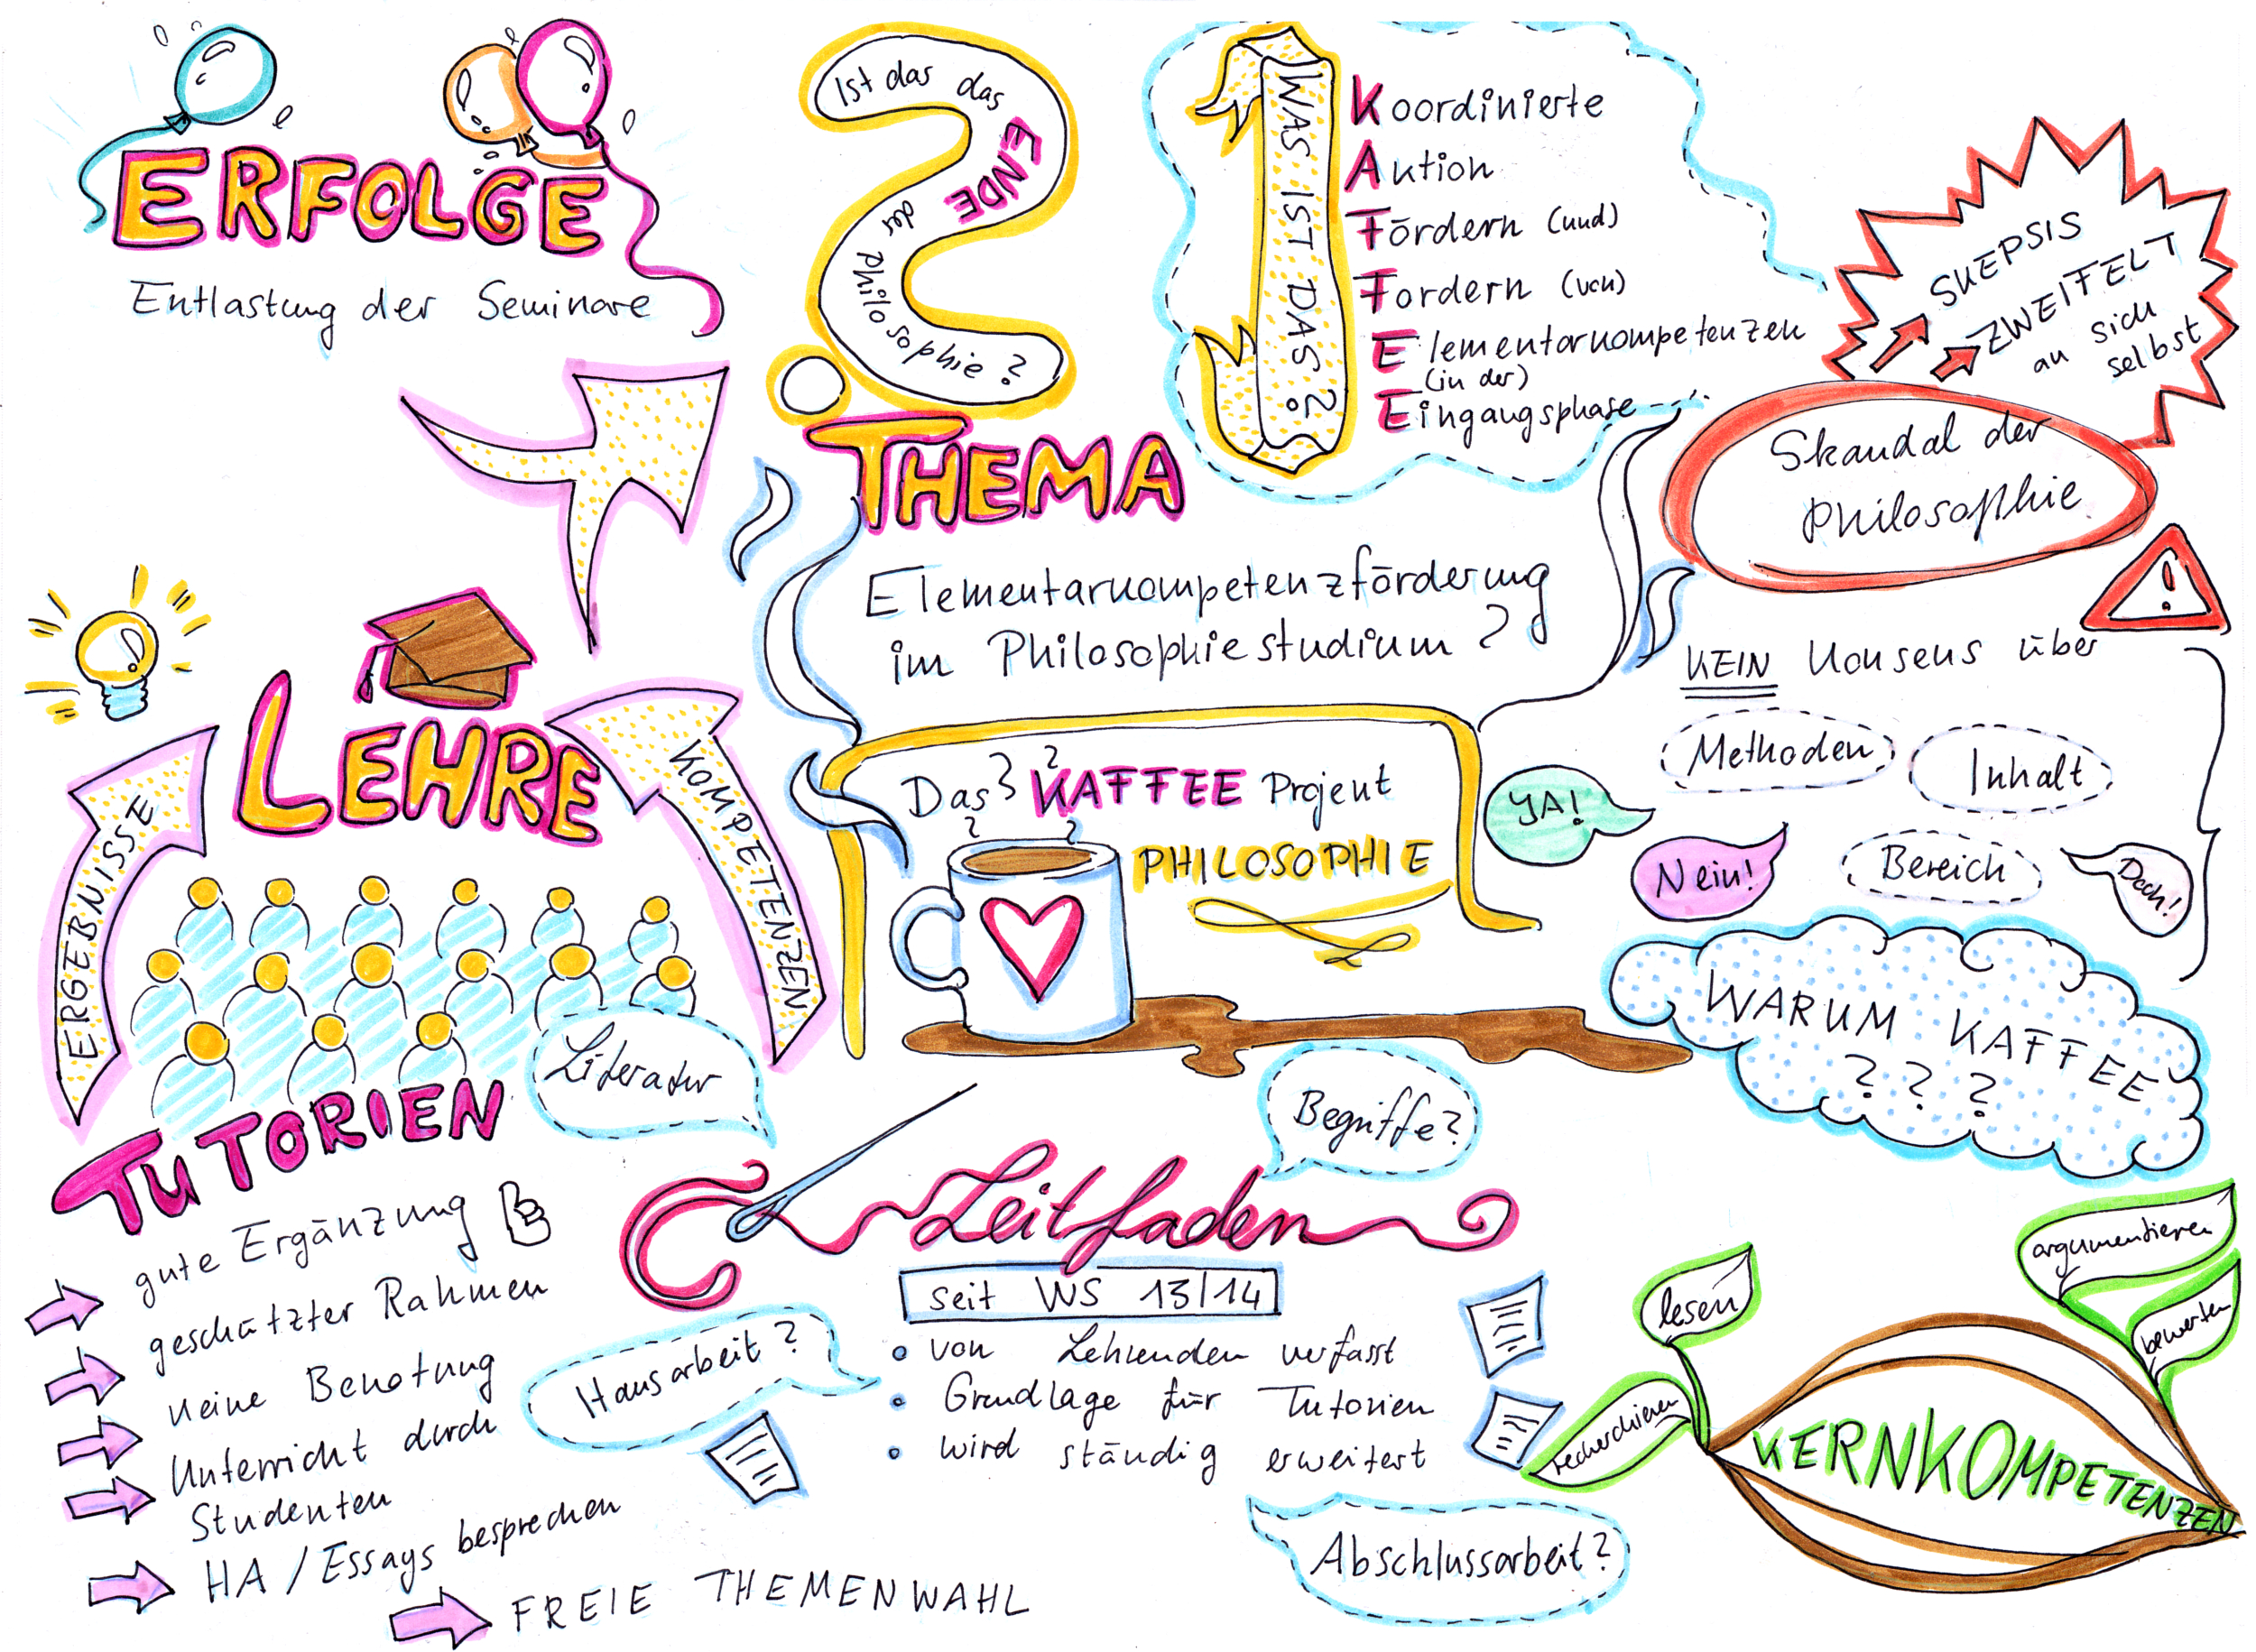 ERFOLGE
Entlastung der Seminare
Ist das das ENDE der Philosophie?
THEMA
Elementarkompetenzförderung
im Philosophiestudium?
WAS IST DAS?
Koordinierte
Aktion
Fördern (und)
Fordern (von)
Elementarkompetenzen
(in der)
Eingangsphase
SKEPSIS
ZWEIFELT
an sich
selbst
Skandal der
Philosophie
!
KEIN Konsens über
Methoden
Inhalt
Bereich
JA!
Nein!
Doch!
WARUM KAFFEE
? ? ?
Das KAFFEE Projekt
PHILOSOPHIE
LEHRE
ERGEBNISSE
KOMPETENZEN
TUTORIEN
gute Ergänzung
geschützter Rahmen
keine Benotung
Unterricht durch
Studenten
HA / Essays besprechen
FREIE THEMENWAHL
Literatur
Begriffe?
Hausarbeit?
Abschlussarbeit?
Leitfaden
seit WS 13/14
von Lehrenden verfasst
Grundlage für Tutorien
wird ständig erweitert
lesen
recherchieren
argumentieren
bewerten
KERNKOMPETENZEN